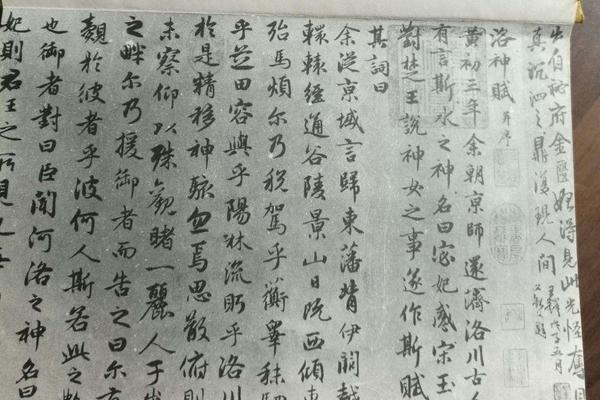 出自秘府金匱始得見此光怪
真沉泗之鼎復現人間
洛神賦 并序
黄初三年余朝京師還濟洛川古人
有言斯水之神名曰宓妃感宋玉
對楚王說神女之事遂作斯賦
其詞曰
余從京城言歸東藩背伊闕越
轘轅經通谷陵景山日既西傾車
殆馬煩尔乃稅駕乎蘅皋秣駟
乎芝田容與乎陽林流眄乎洛川
於是精移神駭忽焉思散俯則
未察仰以殊觀睹一麗人于巖
之畔尔乃援御者而告之曰尔有
覿於彼者乎彼何人斯若此之豔
也御者對曰臣聞河洛之神名曰
妃則君王之所見